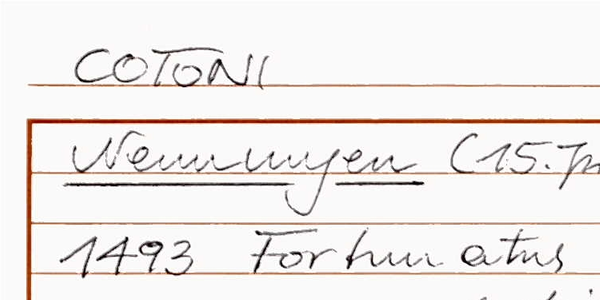 COTONI
Nennungen (15. Jh
1493 Fortunatus